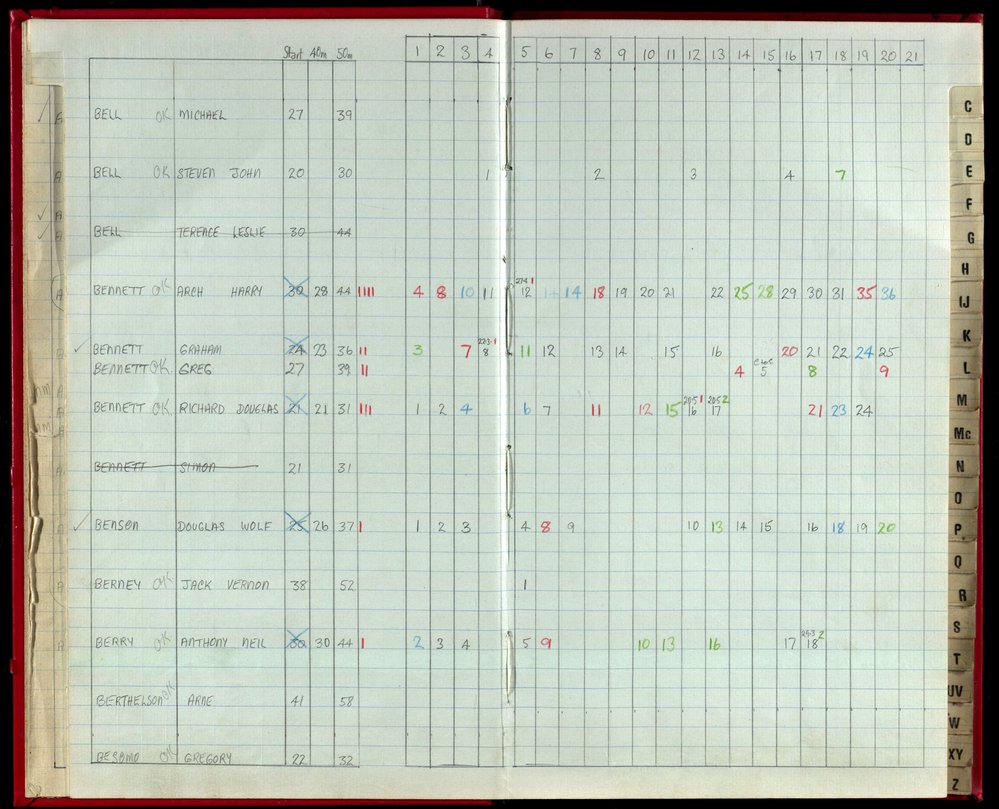 Start 40m 50m 1 2 3 4 5 6 7 8 9 10 11 12 13 14 15 16 17 18 19 20 21
BELL OK MICHAEL 27 39
BELL OK STEVEN JOHN 20 30 1 2 3 4 7
BELL TERENCE LESLIE 30 44
BENNETT OK ARCH HARRY 30 28 44 IIII 4 8 10 11 12 14 18 19 20 21 22 25 28 29 30 31 35 36
BENNETT GRAHAM 24 23 36 II 3 7 223·1 8 11 12 13 14 15 16 20 21 22 24 25
BENNETT OK GREG 27 39 II 4 5 8 9
BENNETT OK RICHARD DOUGLAS 21 21 31 III 1 2 4 6 7 11 12 15 205 1 16 205 2 17 21 23 24
BENNETT SIMON 21 31
BENSON DOUGLAS WOLF 25 26 37 I 1 2 3 4 8 9 10 13 14 15 16 18 19 20
BERNEY OK JACK VERNON 38 52 1
BERRY OK ANTHONY NEIL 30 30 44 I 2 3 4 5 9 10 13 16 17 253 2 18
BERTHELSON OK ARNE 41 58
OK GREGORY 22 32
C
D
E
F
G
H
IJ
K
L
M
Mc
N
O
P
Q
R
S
T
UV
W
XY
Z